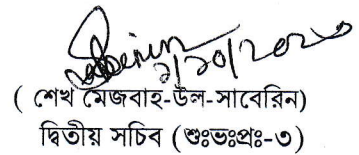 ১/১০/২০২৩
( শেখ মেজবাহ-উল-সাবেরিন)
দ্বিতীয় সচিব (শুঃভঃপ্রঃ-৩)